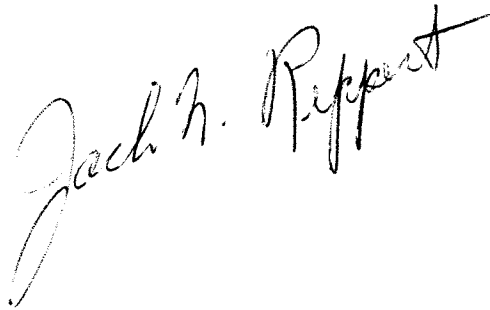 Jack N. Reppert